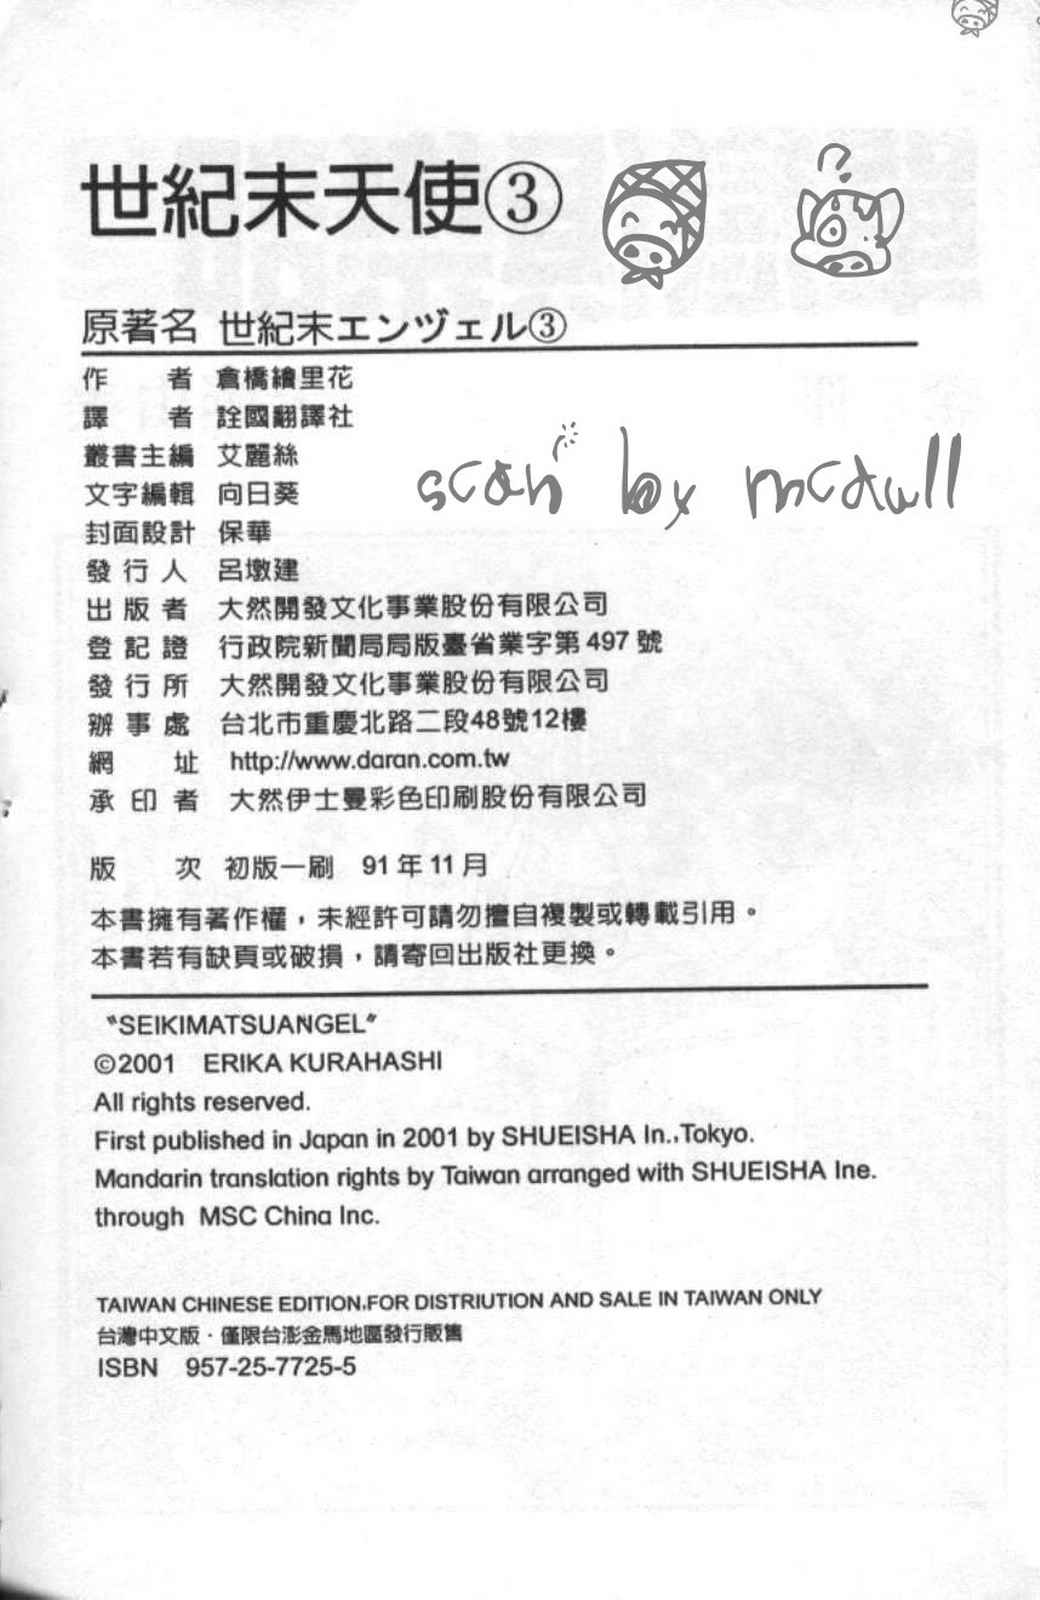 世紀末天使③
原著名 世紀末エンヅェル③
作者 倉橋繪里花
譯者 詮國翻譯社
叢書主編 艾麗絲
文字編輯 向日葵
封面設計 保華
發行人 呂墩建
出版者 大然開發文化事業股份有限公司
登記證 行政院新聞局局版臺省業字第497號
發行所 大然開發文化事業股份有限公司
辦事處 台北市重慶北路二段48號12樓
網址 http://www.daran.com.tw
承印者 大然伊士曼彩色印刷股份有限公司
scan by mcdull
版次 初版一刷 91年11月
本書擁有著作權，未經許可請勿擅自複製或轉載引用。
本書若有缺頁或破損，請寄回出版社更換。
〝SEIKIMATSUANGEL〞
©2001 ERIKA KURAHASHI
All rights reserved.
First published in Japan in 2001 by SHUEISHA In.,Tokyo.
Mandarin translation rights by Taiwan arranged with SHUEISHA Ine.
through MSC China Inc.
TAIWAN CHINESE EDITION.FOR DISTRIUTION AND SALE IN TAIWAN ONLY
台灣中文版·僅限台澎金馬地區發行販售
ISBN 957-25-7725-5